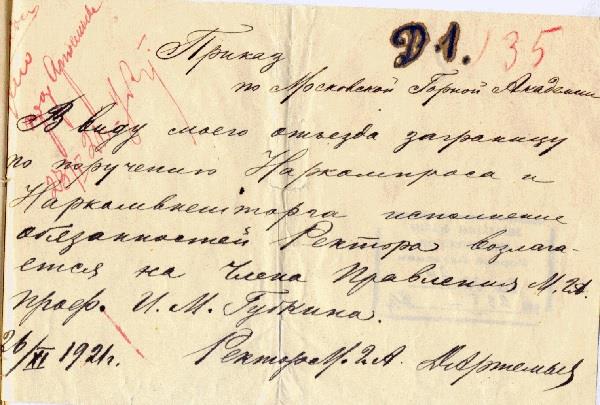 Д.1. 135
Приказ
по Московской Горной Академии
В виду моего отъезда заграницу
по поручению Наркомпроса и
Наркомвнешторга исполнение
обязанностей Ректора возлага-
ется на члена Правления М.Г.А.
проф. И. М. Губкина.
26/XI 1921г. Ректор М.Г.А. ДАртемьев